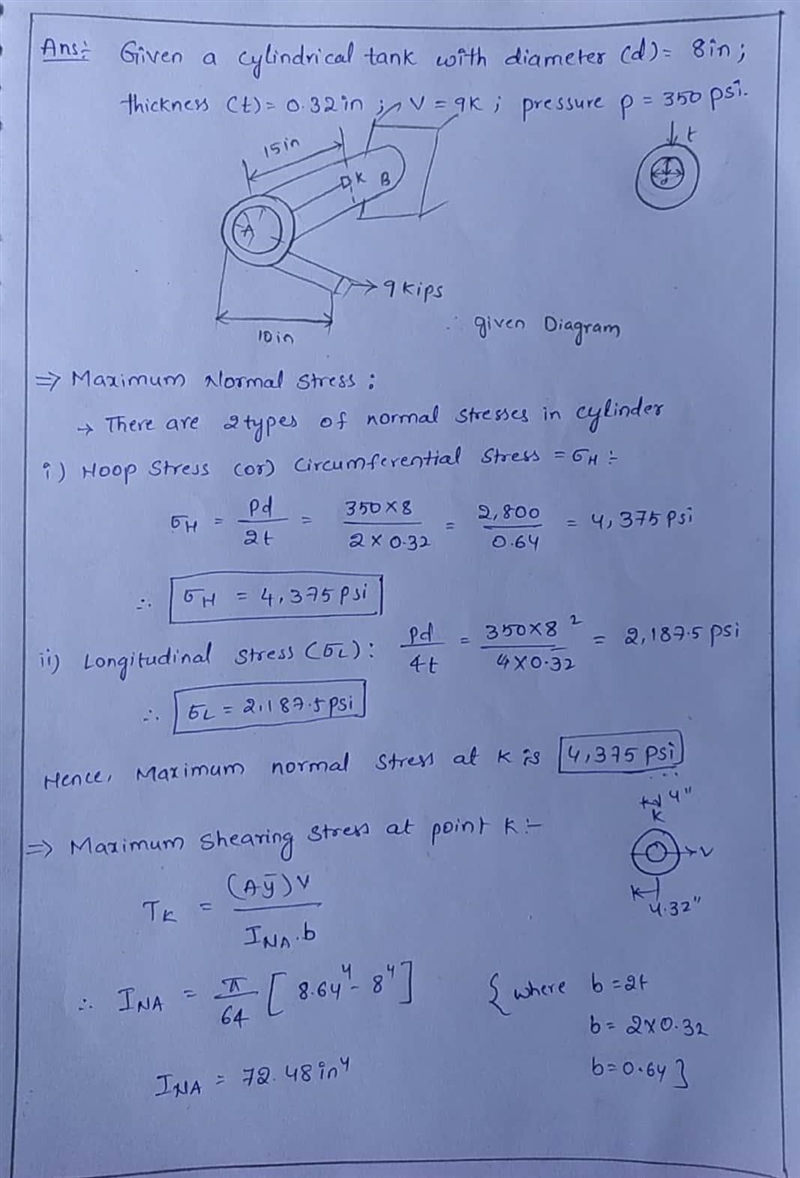 Ans:- Given a cylindrical tank with diameter (d) = 8in ;
thickness (t) = 0.32 in ; V = 9K ; pressure p = 350 psi.
15 in
t
A
D K B
d
9 Kips
10 in
∴ given Diagram
⇒ Maximum Normal Stress :
→ There are 2 types of normal stresses in cylinder
i) Hoop Stress (or) Circumferential Stress = σH :-
σH = Pd/2t = 350×8/2×0.32 = 2,800/0.64 = 4,375 psi
∴ σH = 4,375 psi
ii) Longitudinal Stress (σL) : Pd/4t = 350×8²/4×0.32 = 2,187.5 psi
∴ σL = 2,187.5 psi
Hence, Maximum normal stress at K is 4,375 psi
4"
K
⇒ Maximum Shearing Stress at point K :-
V
K
4.32"
TK = (Aȳ)V/INA.b
∴ INA = π/64 [8.64⁴ - 8⁴] { where b = 2t
b = 2×0.32
INA = 72.48 in⁴ b = 0.64 }